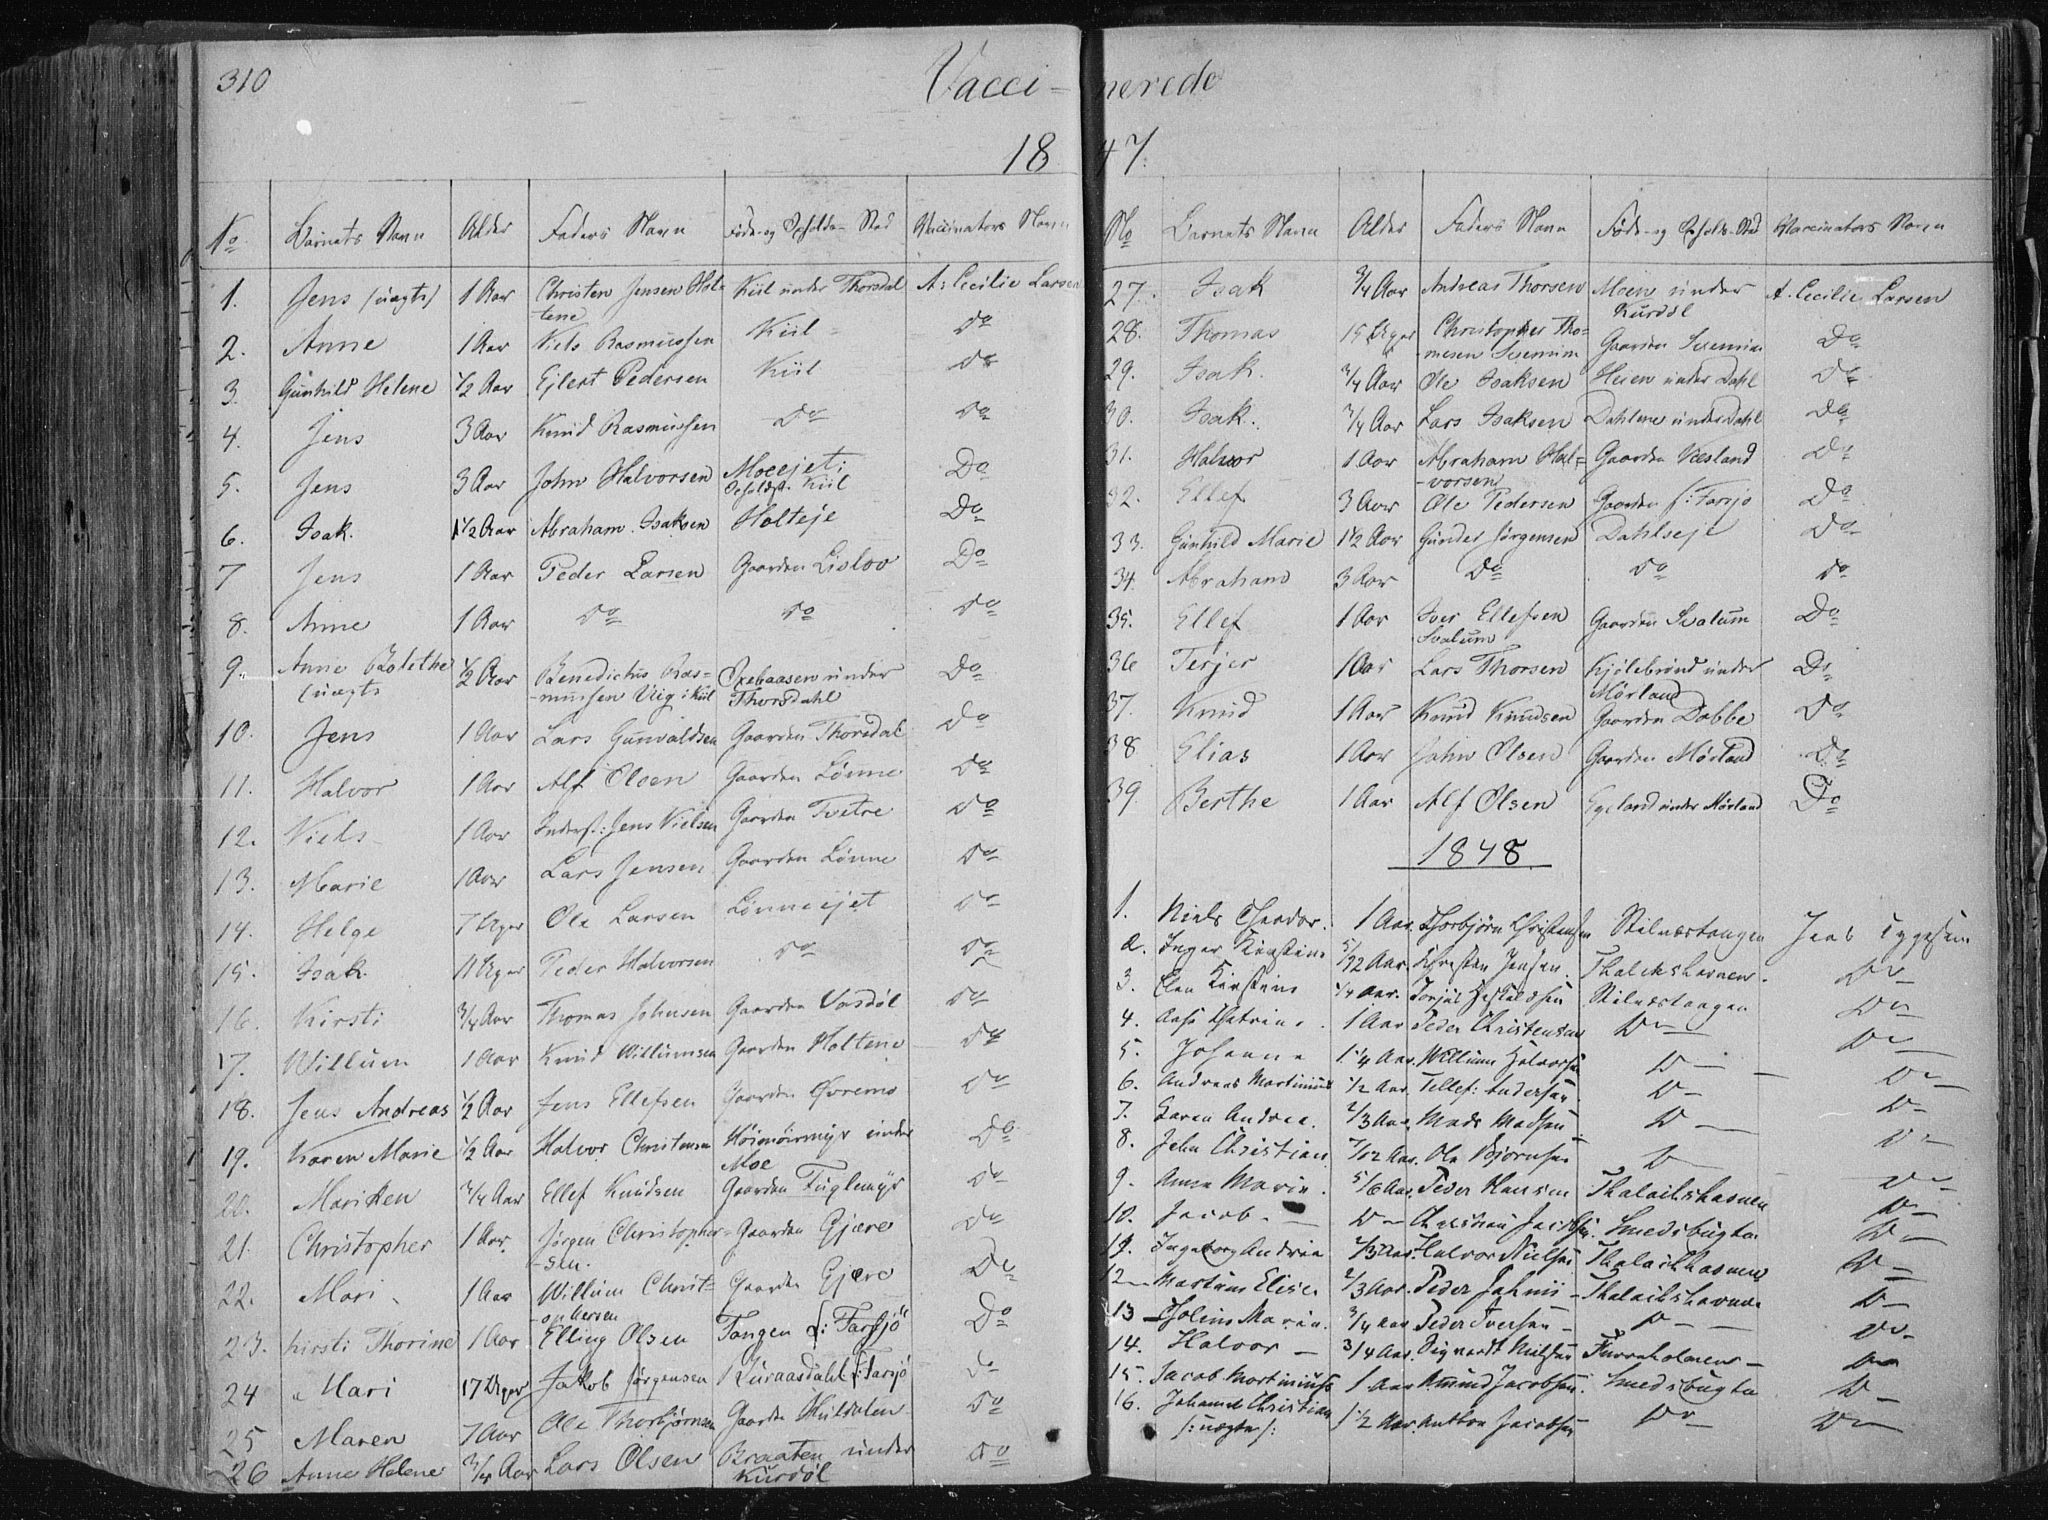 310
Vacci- nerede
18 47.
No Barnets Navn Alder Faders Navn Føde- og Opholds-Sted Vaccinators Navn
1. Jens (uægte) 1 Aar Christen Jensen Hol- Kiil under Thorsdal A: Cecilie Larsen
tene
2. Anne 1 Aar Niels Rasmussen Kiil Do
3. Gunhild Helene 1/2 Aar Ejlert Pedersen Kiil Do
4. Jens 3 Aar Knud Rasmussen Do Do
5. Jens 3 Aar John Halvorsen Moeejet; Do
Opholdst. Kiil
6. Isak. 1 1/2 Aar Abraham Isaksen Holteje Do
7 Jens 1 Aar Peder Larsen Gaarden Lislov Do
8. Anne 1 Aar Do Do Do
9. Anne Bolethe 1/2 Aar Benedictus Ras- Oxebaasen under Do
(uægte mussen Vüg: Kiil Thorsdahl
10. Jens 1 Aar Lars Gunvaldsen Gaarden Thorsdal Do
11. Halvor 1 Aar Alf Olsen Gaarden Lønne Do
12. Niels 1 Aar Inders.: Jens Nielsen Gaarden Tvetre Do
13. Marie 1 Aar Lars Jensen Gaarden Lønne Do
14. Helge 7 Uger Ole Larsen Lønneejet Do
15. Isak. 11 Uger Peder Halvorsen Do Do
16. Kirsti 3/4 Aar Thomas Johnsen Gaarden Vasdøl Do
17. Willum 1 Aar Knud Willumsen Gaarden Holtene Do
18. Jens Andreas 1/2 Aar Jens Ellefsen Gaarden Øvremo Do
19. Karen Marie 1/2 Aar Halvor Christensen Høimöirmyr under Do
Moe
20. Mariken 3/4 Aar Ellef Knudsen Gaarden Fuglemyr Do
21. Christopher 1 Aar. Jørgen Christopher- Gaarden Gjære Do
sen.
22. Mari 1 Aar Willum Christ- Gaarden Gjære Do
ophersen
23. Kirsti Thorine 1 Aar Elling Olsen Tangen f: Tarsjö Do
24 Mari 17 Uger Jakob Jørgensen Kuraasdahl f: Tarsjö Do
25 Maren 7 Aar Ole Thorbjørnsen Gaarden Huldalen Do
26 Anne Helene 3/4 Aar Lars Olsen Braaten under Do
Kurdöl
No Barnets Navn Alder Faders Navn Føde- og Opholds-Sted Vaccinators Navn
27. Isak 3/4 Aar Andreas Thorsen Moen under A. Cecilie Larsen
Kurdöl
28. Thomas 15 Uger Christopher Tho- Gaarden Svennim Do
mesen Svennim
29. Isak. 3/4 Aar Ole Isaksen Heien under Dahl Do
30. Isak. 3/4 Aar Lars Isaksen Dahlene under Dahl Do
31. Halvor 1 Aar Abraham Hal- Gaarden Væsland Do
vorsen
32. Ellef 3 Aar Ole Pedersen Gaarden f: Tarsjo Do
33. Gunhild Marie 1 1/2 Aar Gunder Jørgensen Dahlseje Do
34. Abraham 3 Aar Do Do Do
35. Ellef 1 Aar Iver Ellefsen Gaarden Svalum Do
Svalum
36 Terjer 1 Aar Lars Thorsen Kjölebrönd under Do
Mörland
37. Knud 1 Aar Knud Knudsen Gaarden Dobbe Do
38 Elias 1 Aar John Olsen Gaarden Mörland Do
39. Berthe 1 Aar Alf Olsen Egeland under Mörland Do
1848.
1. Niels Theodor. 1 Aar. Thorbjörn Christensen Stilnestangen Jens Tygesen
2. Inger Kirstine 5/12 Aar. Christen Jensen. Thalakshavnen. Do
3. Elen Kirstine 1/4 Aar. Torjus Stilnestangen Do
4. Aase Cathrine. 1 Aar Peder Christensen Do Do
5. Johanne 1 1/4 Aar. Willum Halvorsen Do Do
6. Andreas Martinius 1/2 Aar. Tellef: Andersen Do Do
7. Karen Andrea. 2/3 Aar. Mads Madsen Do Do
8. John Christian. 7/12 Aar. Ole Bjørnsen Do
9. Anna Marie. 5/6 Aar. Peder Hansen Thalakshavnen Do
10. Jacob. Do Christian Jacobsen. Smedsbugta. Do
11. Ingeborg Andrea 2/3 Aar. Halvor Nielsen Thalakshavnen Do
12 Martine Elise. 2/3 Aar. Peder Thalakshavnen Do
13 Tholine Marie. 3/4 Aar Peder Iversen Do Do
14. Halvor 3/4 Aar. Sigvardt Nielsen Furreholmen Do
15. Jacob Martinius 1 Aar Amund Jacobsen. Smedsbugta Do
16. Johannes Christian 1 1/2 Aar. Anthon Jacobsen Do Do
/: uægte :/